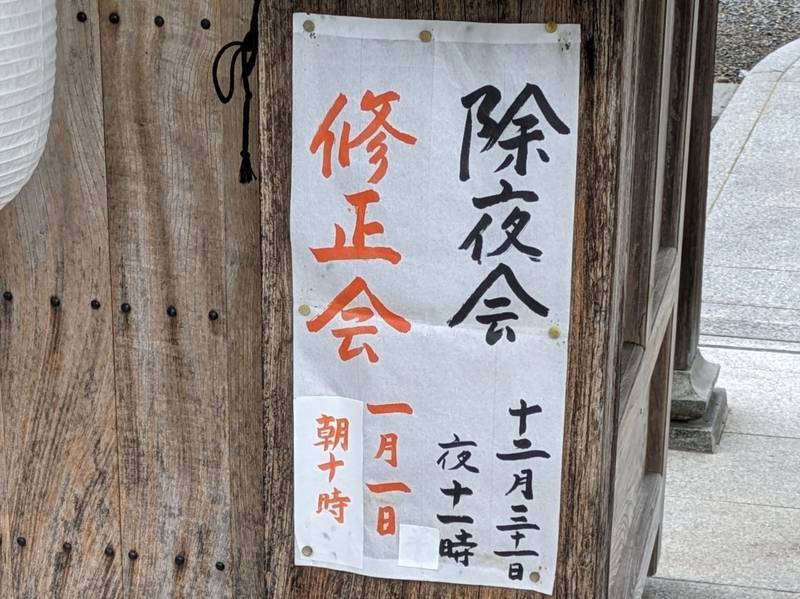 除夜会
十二月三十一日
夜十一時
修正会
一月一日
朝十時